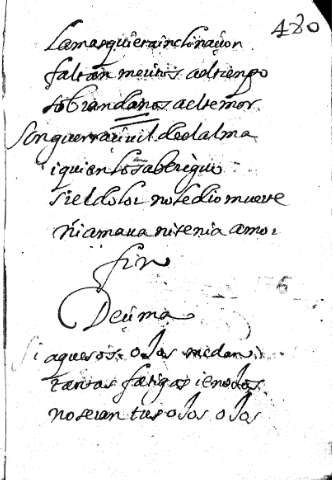 480
la mas quieta inclinaçion
faltan meritos al tiengo
sobran daños al temor
son guerra çiuil del alma
i quien lo sabe
si el dolor no le dio muerte
ni amaua ni tenia amor
fin
Deçima
Si aquesos ojos me dan
tantas fatigas i enojos
no seran tus ojos ojos